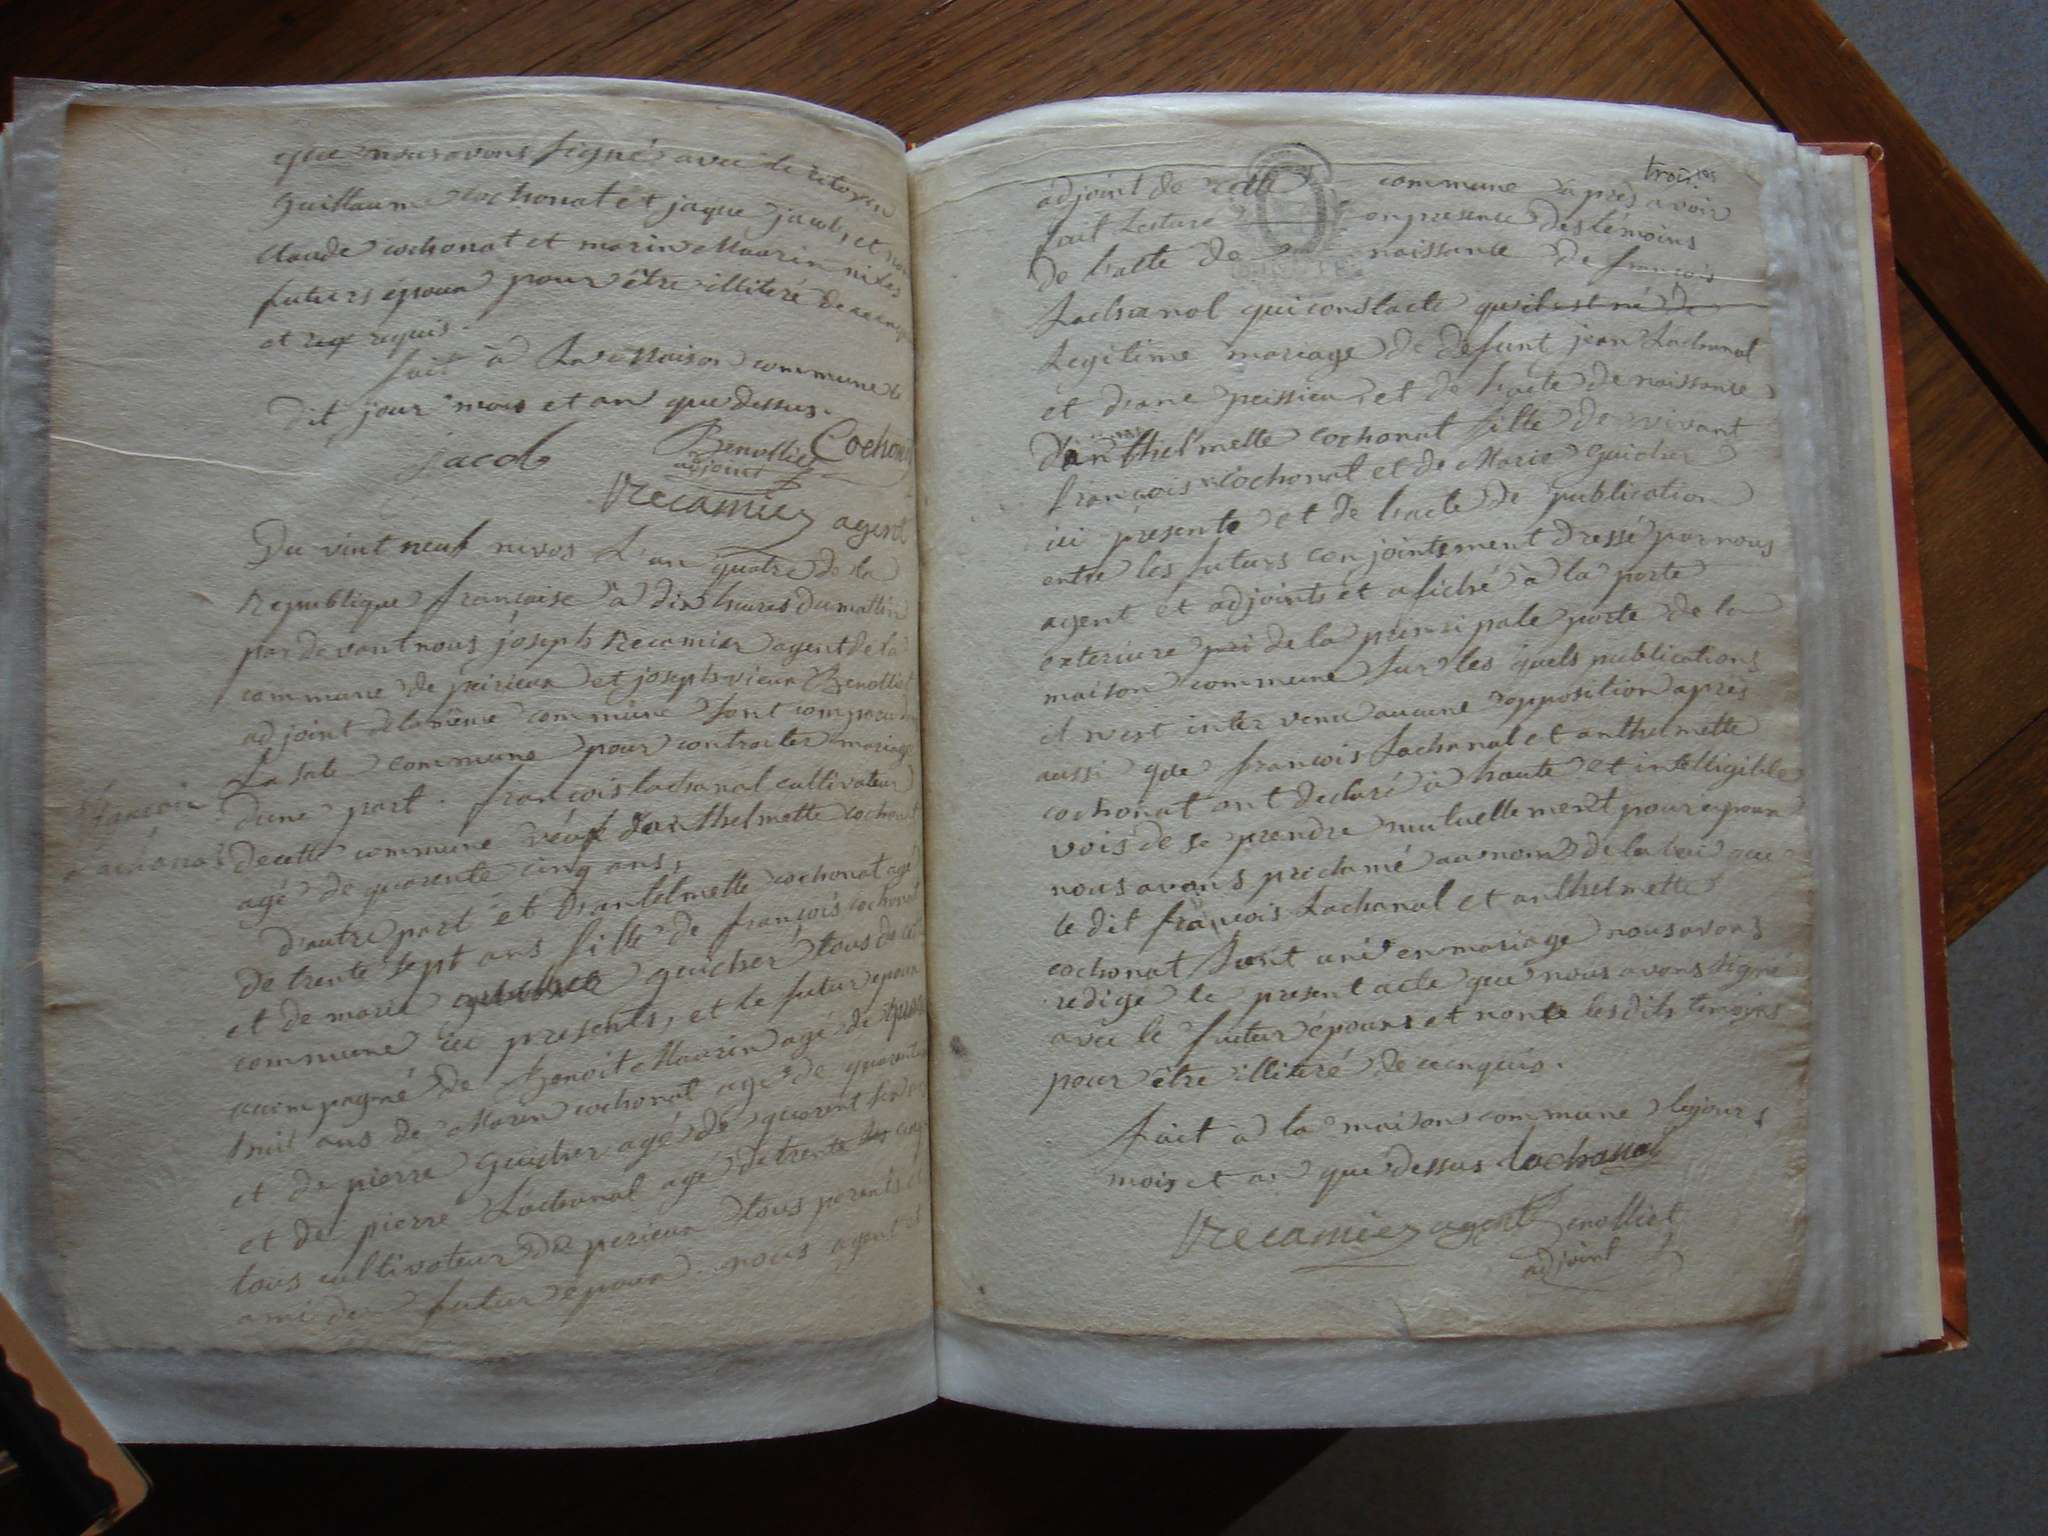 que nous avons signé avec le citoyen
Guillaume cochonat et jaque jacob, et non
claude cochonat et marin Maurin ni les
futurs epoux pour être illiteré de ce enqui
et requis.
fait à La Maison commune le
dit jour mois et an que dessus.
jacob Benolliet Cochonat
adjoint
Recamier agent
Du vint neuf nivos L'an quatre de la
Republique françoise à dix heures du mattin
par devant nous joseph Recamier agent de la
commune de peirieux et joseph vieux Benolliet
adjoint de la même commune sont comparu dans
La sale commune pour contracter mariage
d'une part. françois lachanal cultivateur
François
Lachanal
de cette commune veuf d'anthelmette cochonat
agé de quarente cinq ans,
d'autre part et D'antelmette cochonat agé
de trente sept ans fille de françois cochonat
et de marie guicher tous de cette
commune ici presents, et le futur epoux
accompagné de Benoit Maurin agé de
huit ans de Marin cochonat agé de quarente
et de pierre Guicher agé de quarent
et de pierre Lachanal agé de trente cinq
tous cultivateur de perieux tous parents et
ami des futur époux. nous agent et
trois
adjoint de cette commune après avoir
fait Lecture en presence des témoins
de l'acte de naissance de françois
Lachanal qui constacte qu'il est né de
Legitime mariage de defunt jean Lachanal
et d'ane peissieu, et de l'acte de naissance
d'anthelmette cochonat fille de vivant
françois Cochonat et de Marie Guicher
ici presente et de l'acte de publication
entre les futurs conjointement dressé par nous
agent et adjoints et afiché à la porte
exterieure de la prinsipale porte de la
maison commune sur les quels publications
il n'est inter venu aucune opposition après
aussi que françois Lachanal et anthelmette
cochonat ont declaré à haute et intelligible
vois de se prendre mutuellement pour epoux
nous avons proclamé au nom de la loi que
le dit françois Lachanal et anthelmette
cochonat sont uni en mariage nous avons
redigé le present acte que nous avons signé
avec le futur épouxs et non les dits temoins
pour être illiteré de ce enquis.
fait à la maison commune les jours
mois et an que dessus lachanal
Recamier agent Benolliet
adjoint